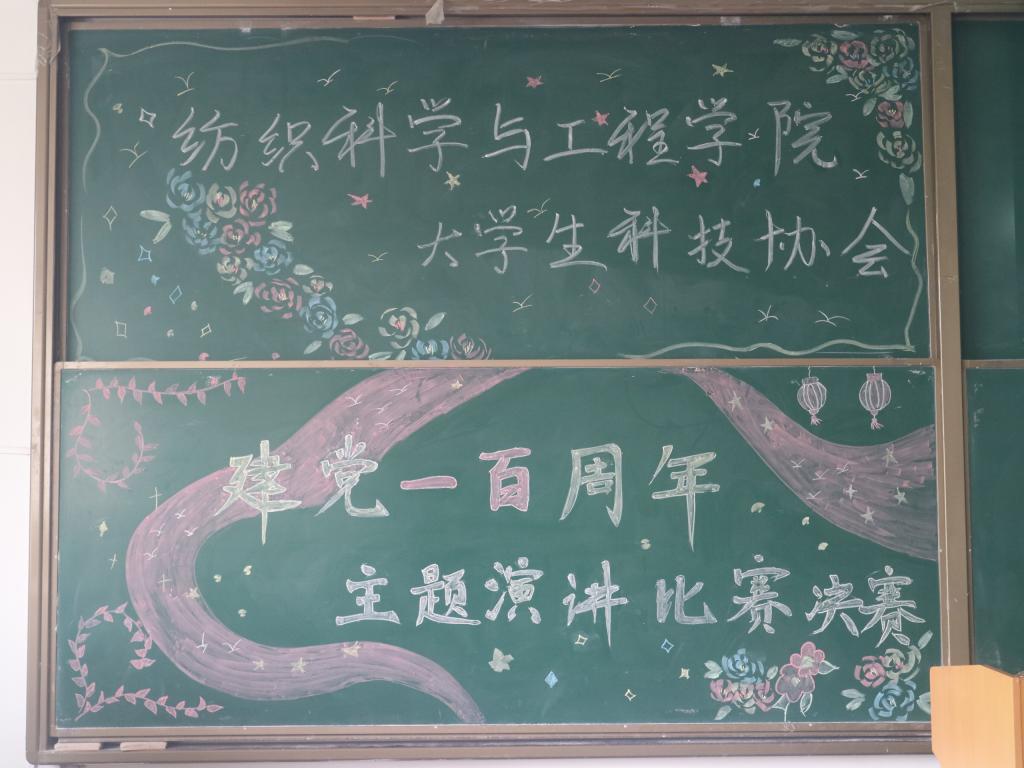 纺织科学与工程学院
大学生科技协会
建党一百周年
主题演讲比赛决赛